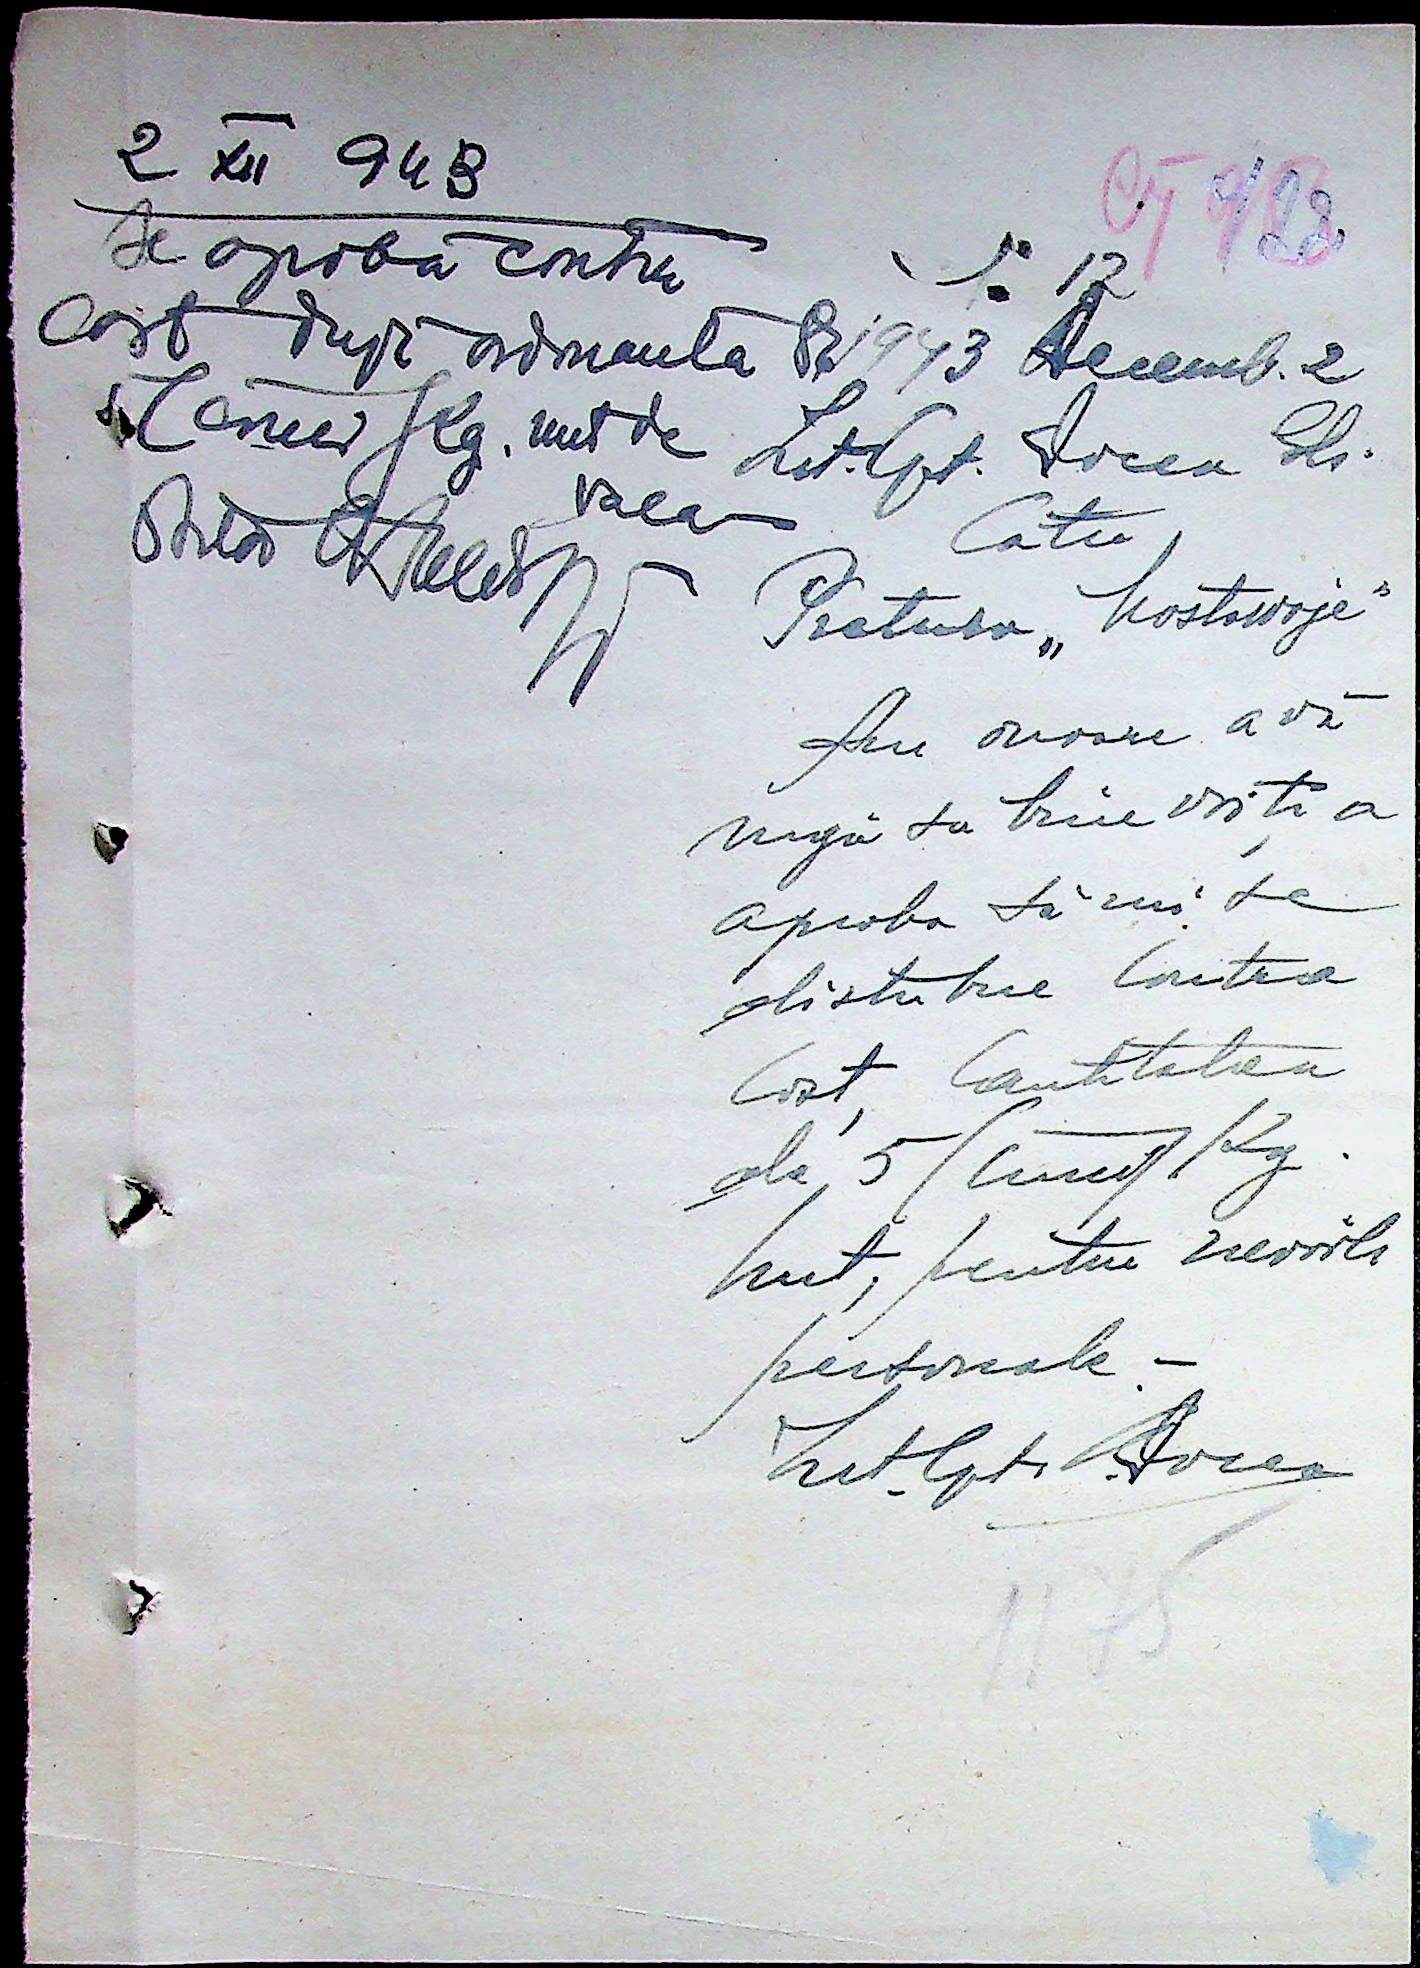 2 XII 943
Se aprobă contra
cost după ordonanta 82
5 (cinci) Kg. unt de
vaca
Pretor
No 12
1943 Decemb. 2
Lt. Cpt. Docea
Catre,
Pretura „Mostowoje"
Am onoare a vă
rugă sa bine voiti a
aproba să mi se
distribue contra
cost, cantitatea
de 5 (cinci) Kg.
unt, pentru nevoile
personale. –
Lt. Cpt. Docea
1175